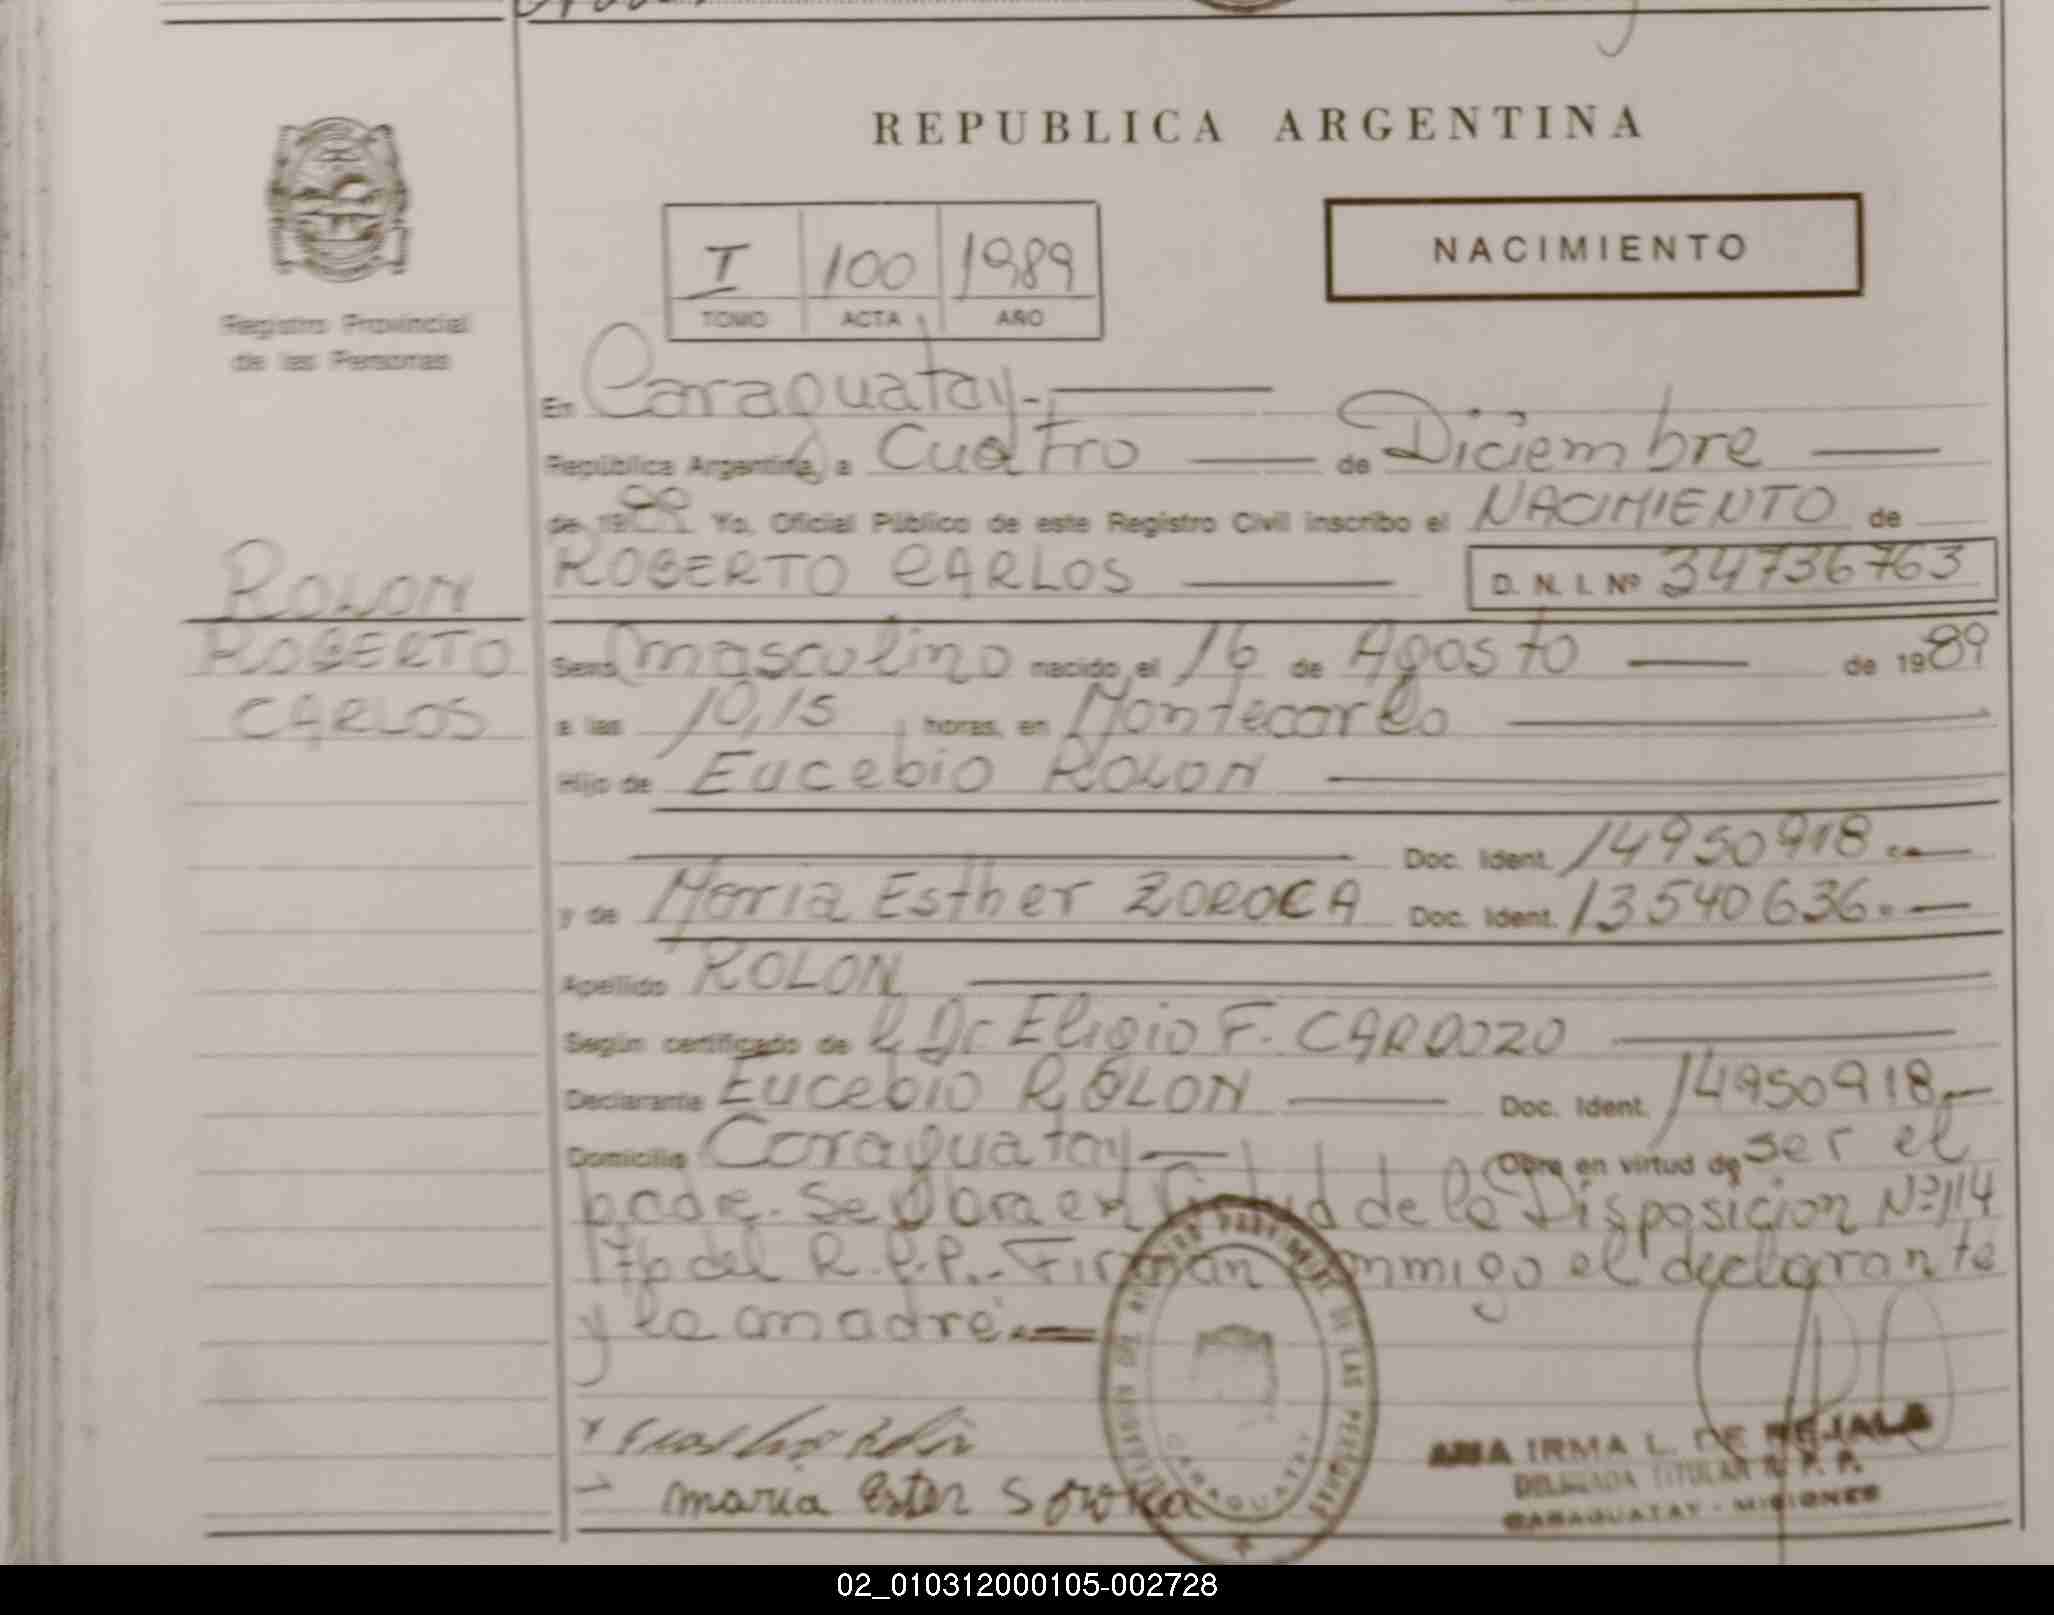 REPUBLICA ARGENTINA
NACIMIENTO
I 100 1989
TOMO ACTA AÑO
Registro Provincial
de las Personas
En Caraguatay.-
República Argentina, a Cuatro de Diciembre
de 1989 Yo, Oficial Público de este Registro Civil inscribo el NACIMIENTO de
ROBERTO CARLOS D. N. I. Nº 34736763
ROLON
ROBERTO
CARLOS
Sexo masculino nacido el 16 de Agosto de 1989
a las 10,15 horas, en Montecarlo
Hijo de Eucebio ROLON
Doc. Ident. 14950918.-
y de Maria Esther ZOROCA Doc. Ident. 13540636.-
Apellido ROLON
Según certificado de l Dr Eligio F. CARDOZO
Declarante Eucebio ROLON Doc. Ident. 14950918.-
Domicilio Caraguatay Obra en virtud de ser el
padre. Se obra en virtud de la Disposicion Nº 114
176 del R.P.P.- Firman conmigo el declarante
y la madre.-
maria Ester Soroka
REGISTRO PROVINCIAL DE LAS PERSONAS
CARAGUATAY
IRMA L. DE
DELEGADA TITULAR R. P. P.
CARAGUATAY - MISIONES
02_010312000105-002728